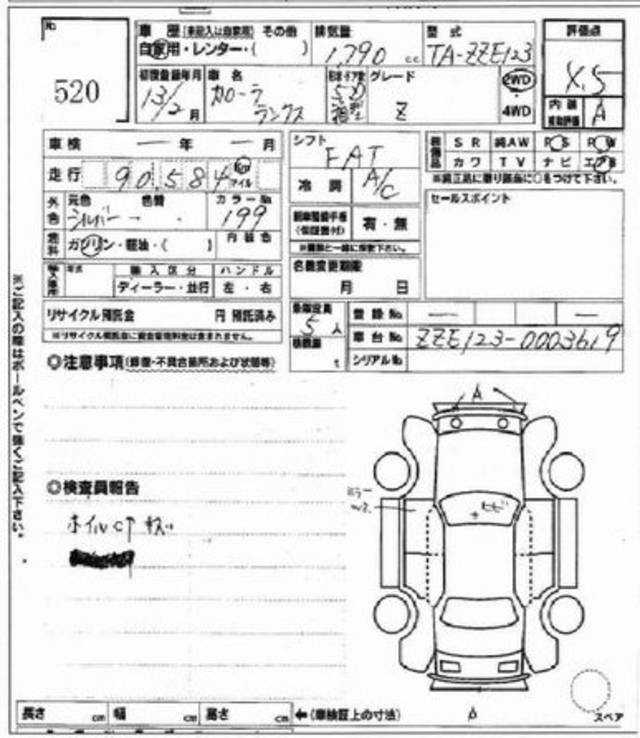 No.
520
車歴(未記入は自家用) その他
自家用・レンター・( )
排気量
1,790 cc
型式
TA-ZZE123
評価点
X.5
内装
A
初度登録年月
13/2月
車名
カローラ
ランクス
グレード
Z
2WD
4WD
車検 ー年 ー月
走行 90,584 km マイル
外色
元色 色替 カラーNo
シルバー 199
燃料 ガソリン・軽油・( ) 内装色
年式 輸入区分 ハンドル
ディーラー・並行 左・右
リサイクル預託金 円 預託済み
※リサイクル預託金に資金管理料金は含まれません。
シフト
FAT
冷房 A/C
(保証書付) 有・無
※書類と一緒に保管下さい。
名義変更期限
月 日
SR 純AW PS PW
カワ TV ナビ エアB
※純正品に限り該当に○をつけて下さい。
セールスポイント
乗車定員
5人
積載量 t
登録No. ー ー
車台No. ZZE123-0003619
シリアルNo.
◎注意事項(修復・不具合箇所および状態等)
◎検査員報告
ホイルCAP キズ
A
ミラー
ヒビ
スペア
長さ cm 幅 cm 高さ cm ←(車検証上の寸法)
※ご記入の際はボールペンで強くご記入下さい。